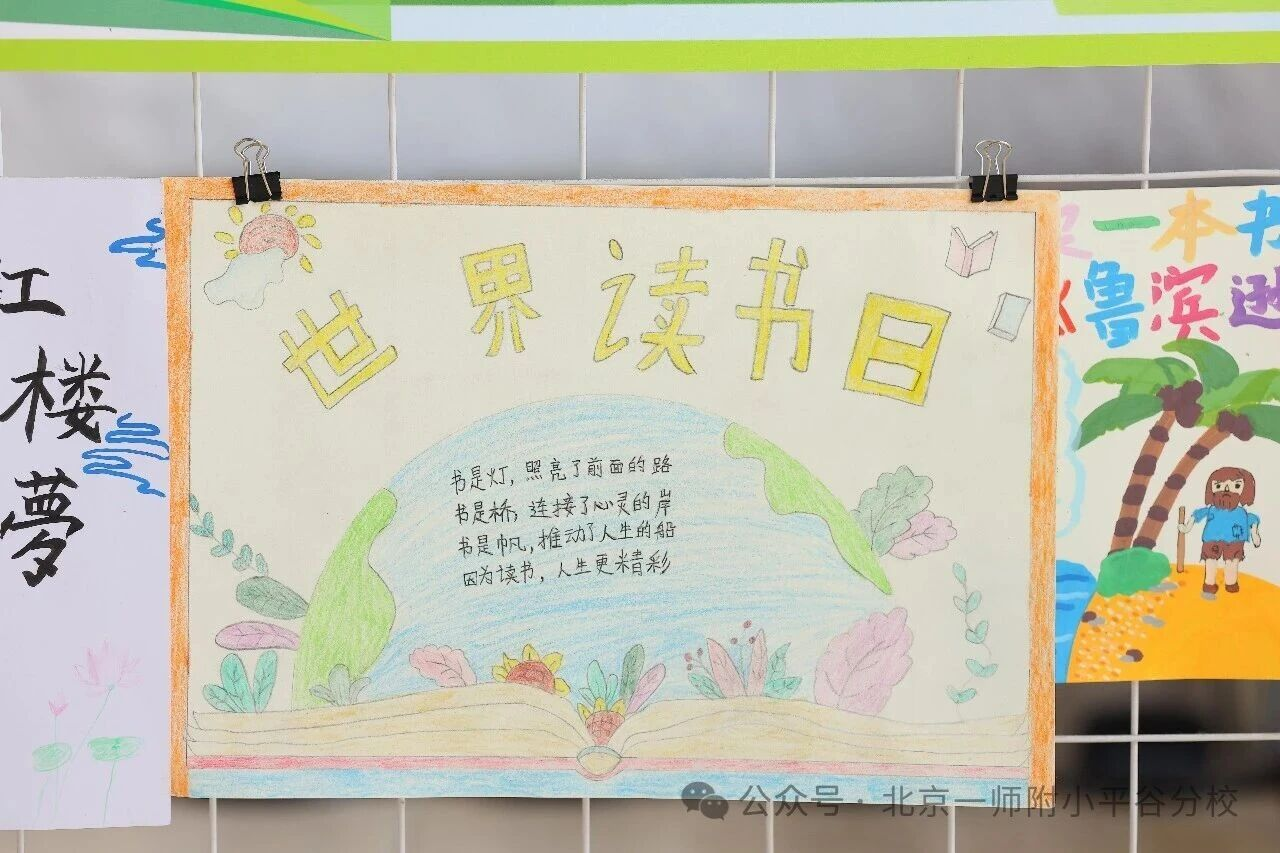 世界读书日
书是灯,照亮了前面的路
书是桥,连接了心灵的岸
书是帆,推动了人生的船
因为读书,人生更精彩
红
楼
夢
一本书
鲁滨逊
公众号·北京一师附小平谷分校